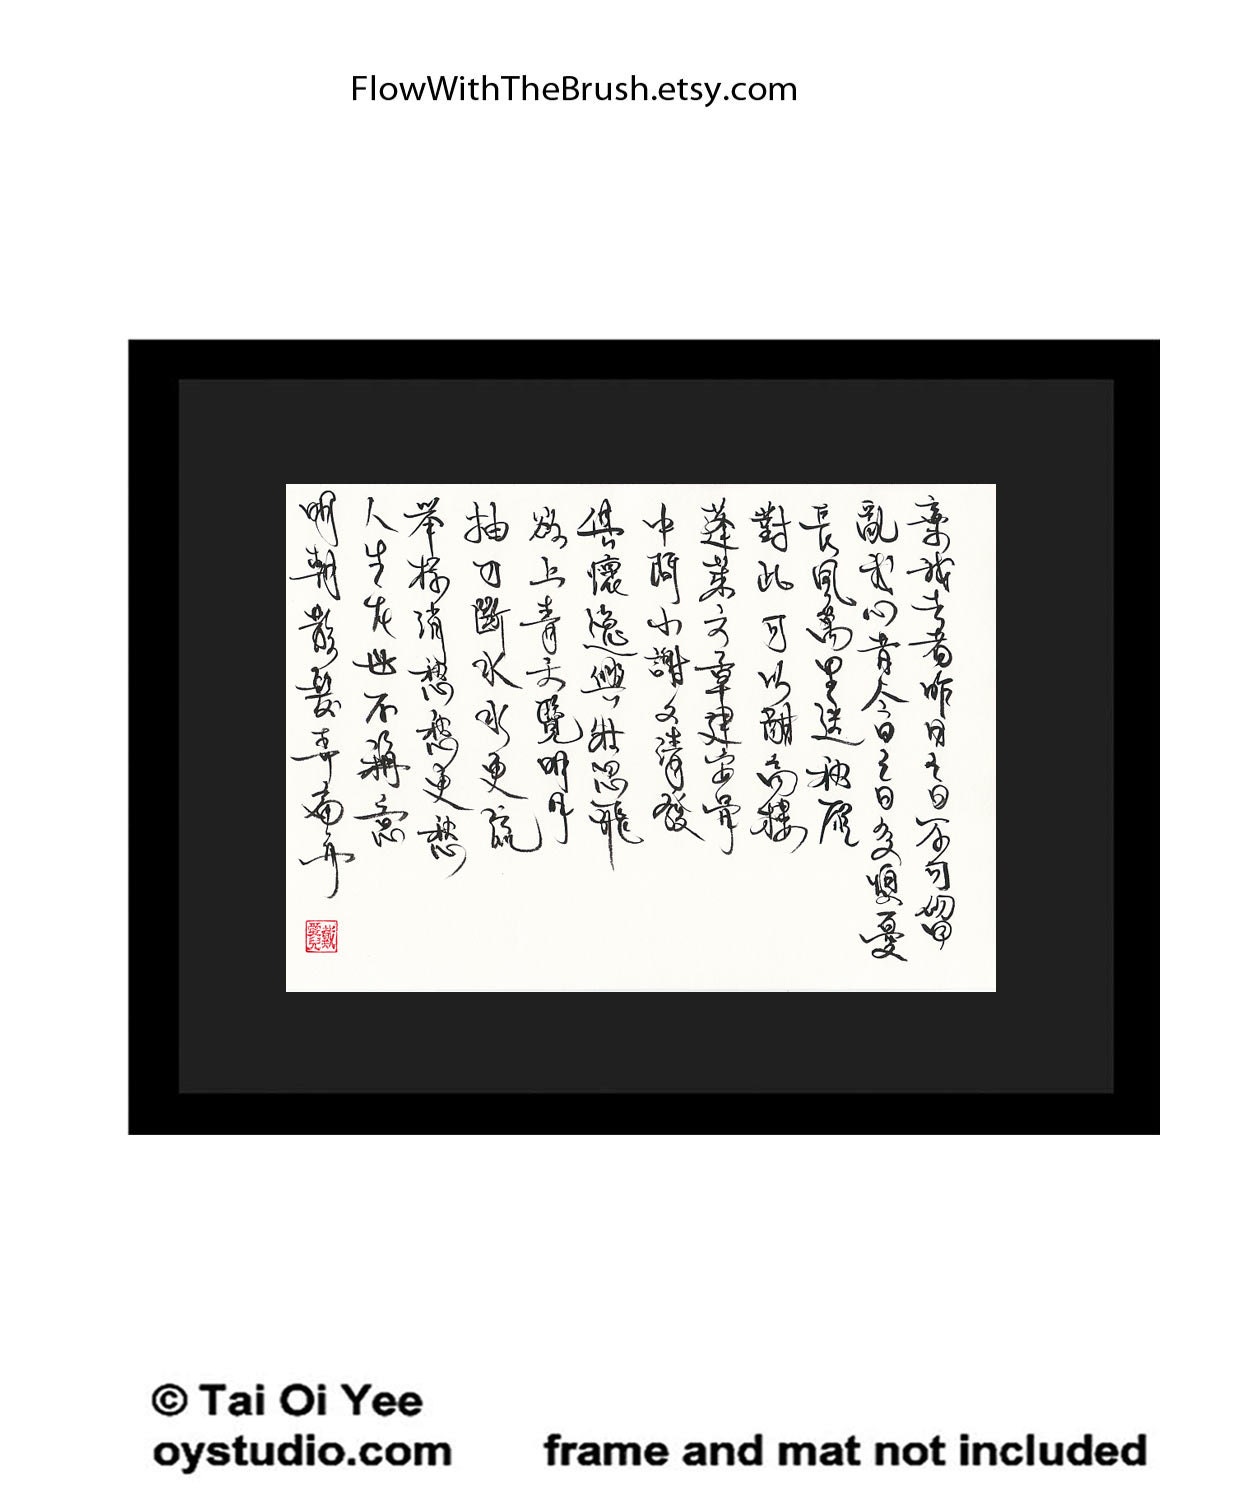 FlowWithTheBrush.etsy.com
棄我去者昨日之日不可留
亂我心者今日之日多煩憂
長風萬里送秋雁
對此可以酣高樓
蓬萊文章建安骨
中間小謝又清發
俱懷逸興壯思飛
欲上青天覽明月
抽刀斷水水更流
舉杯消愁愁更愁
人生在世不稱意
明朝散髮弄扁舟
© Tai Oi Yee
oystudio.com
frame and mat not included